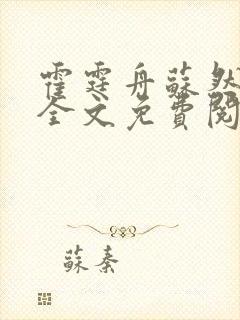 霍霆舟蘇然
全文免費閱
蘇秦